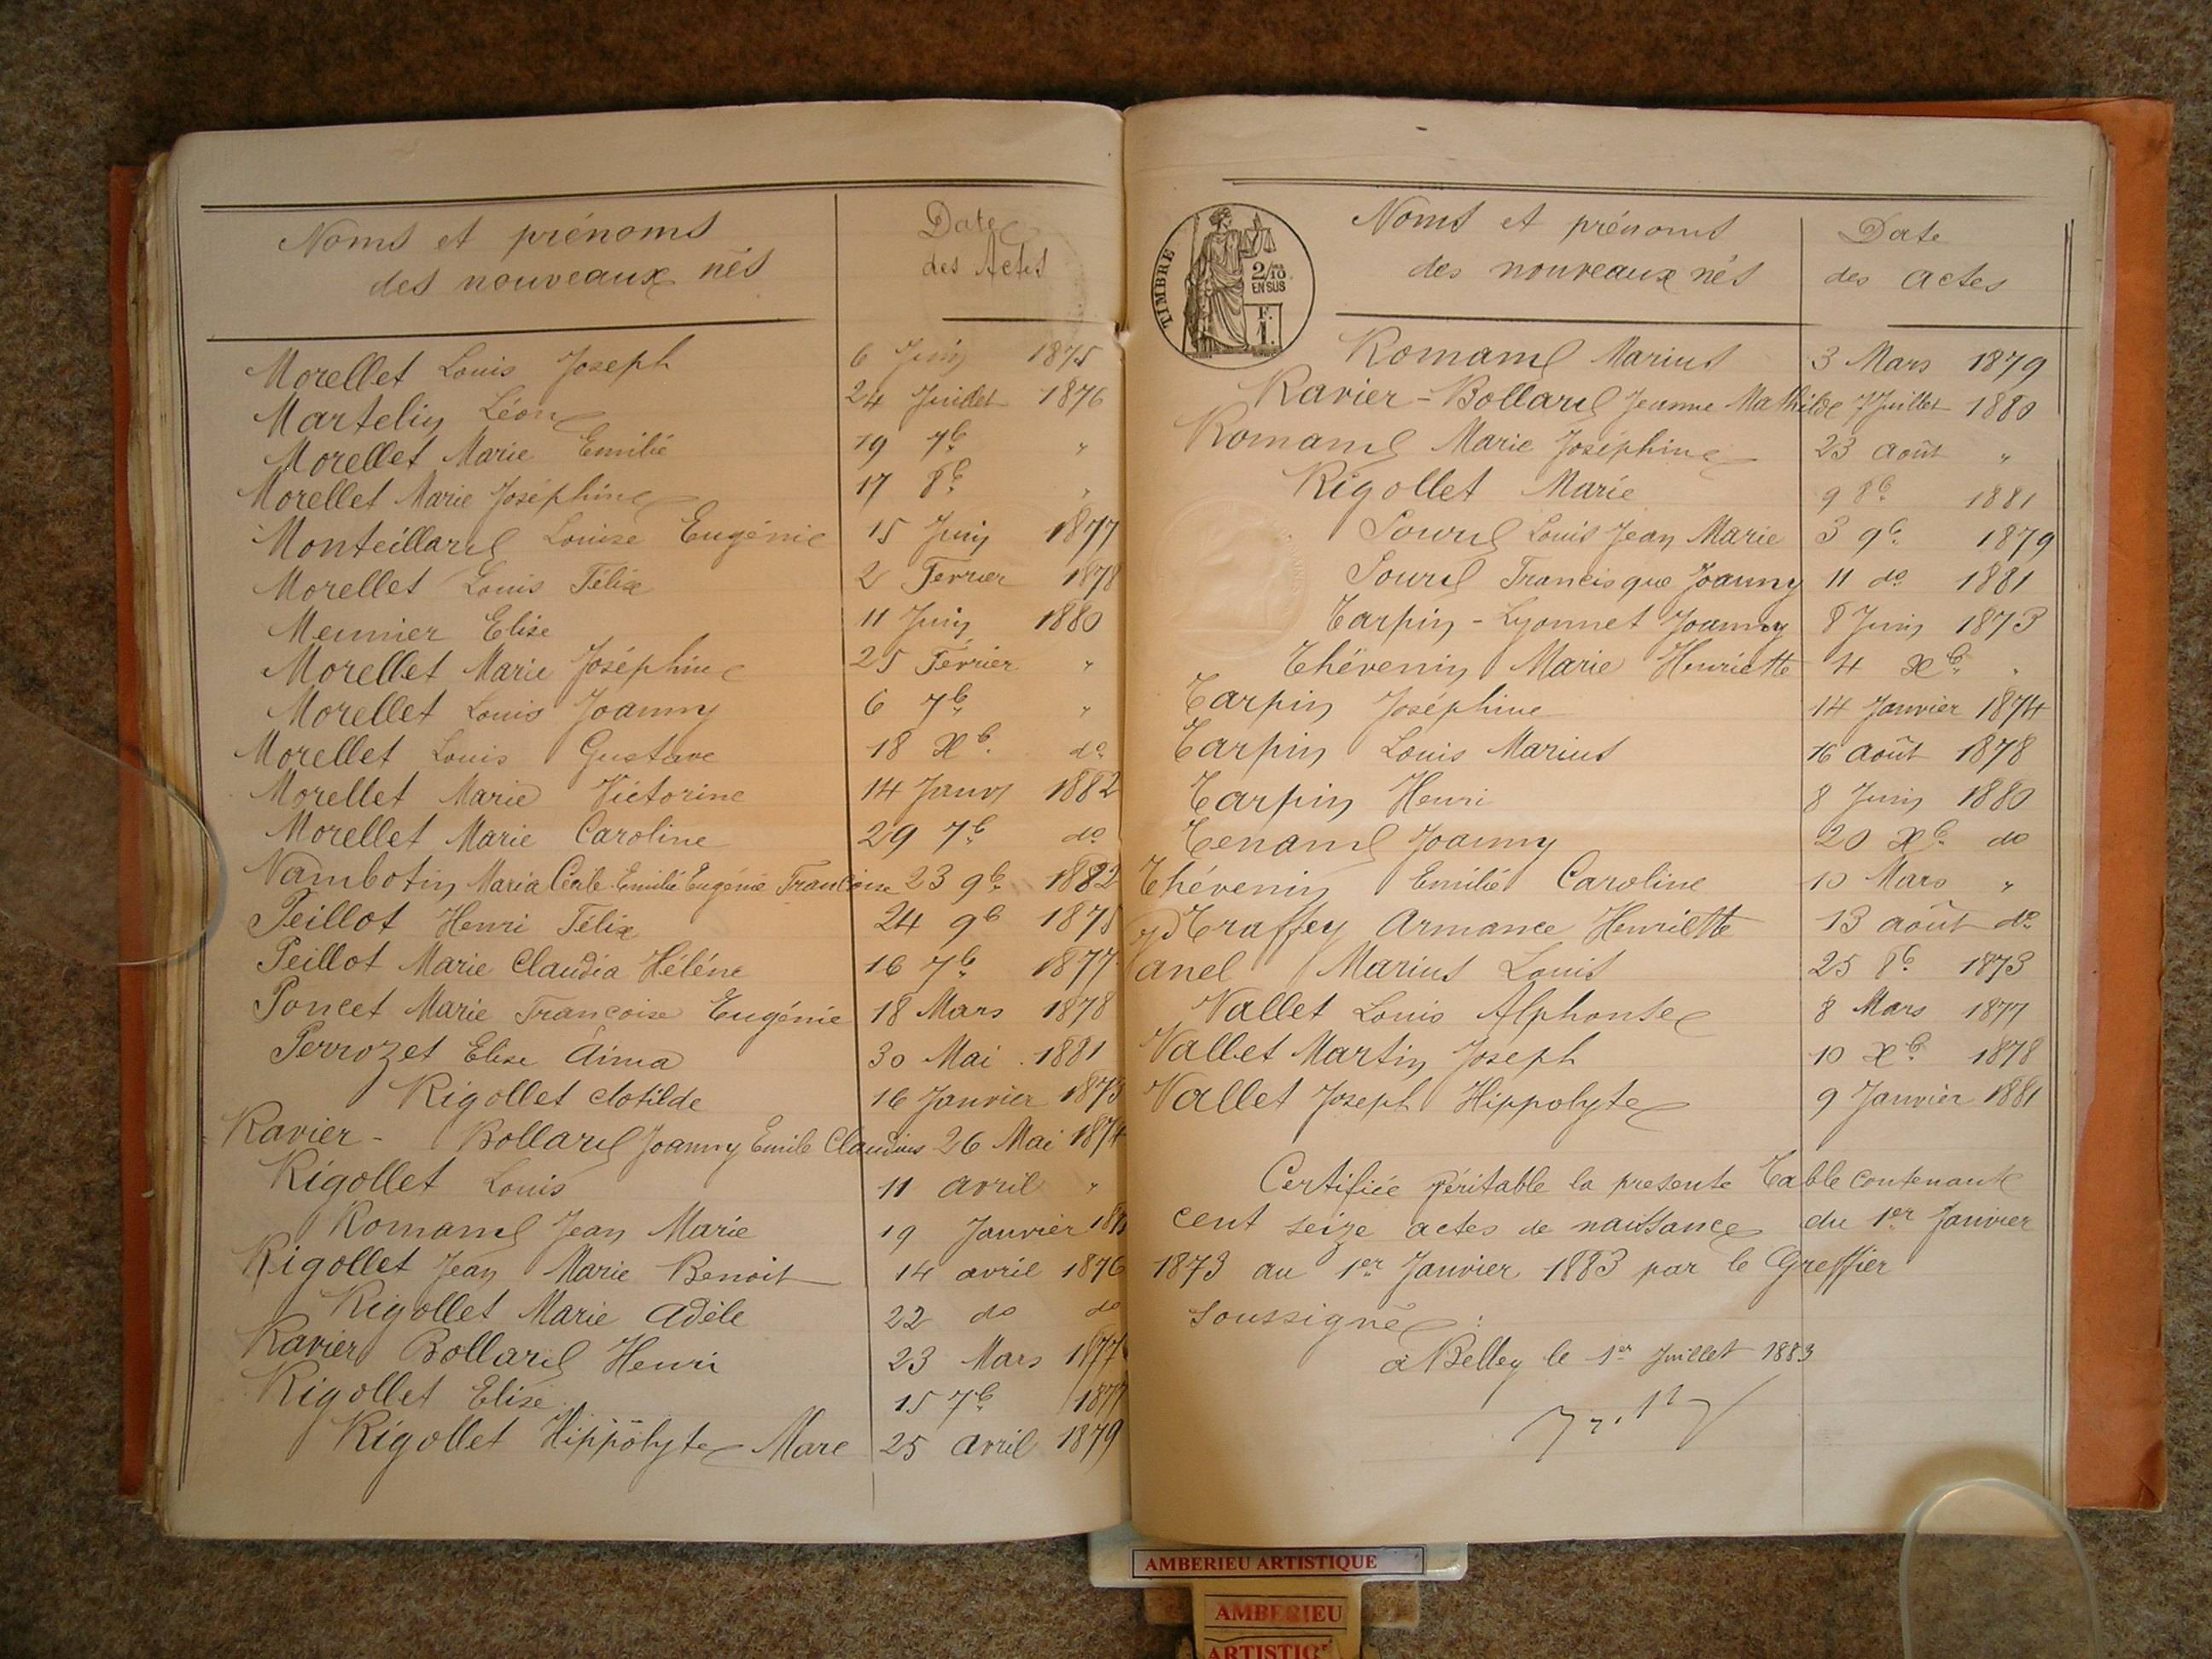 Noms et prénoms
des nouveaux nés
Date
des Actes
Morellet Louis Joseph 6 Juin 1875
Martelin Léon 24 Juillet 1876
Morellet Marie Emilie 19 7b. "
Morellet Marie Joséphine 17 8b. "
Monteillard Louise Eugénie 15 Juin 1877
Morellet Louis Félix 2 Fevrier 1878
Meunier Elise 11 Juin 1880
Morellet Marie Joséphine 25 Février "
Morellet Louis Joanny 6 7b. "
Morellet Louis Gustave 18 Xb. do
Morellet Marie Victorine 14 Janvr 1882
Morellet Marie Caroline 29 7b. do
Nambotin Maria Cécile Emilie Eugénie Francoise 23 9b. 1882
Peillot Henri Félix 24 9b 1875
Peillot Marie Claudia Héléne 16 7b. 1877
Poncet Marie Francoise Eugénie 18 Mars 1878
Perrozet Elise Aima 30 Mai 1881
Rigollet Clotilde 16 Janvier 1873
Ravier - Bollard Joanny Emile Claudius 26 Mai 1874
Rigollet Louis 11 avril "
Romand Jean Marie 19 Janvier
Rigollet Jean Marie Benoit 14 avril 1876
Rigollet Marie Adèle 22 do do
Ravier Bollard Henri 23 Mars 1877
Rigollet Elise 15 7b. 1877
Rigollet Hippolyte Marc 25 avril 1879
TIMBRE
2/10
EN SUS
F.
1.
Noms et prénoms
des nouveaux nés
Date
des actes
Romand Marius 3 Mars 1879
Ravier - Bollard Jeanne Mathilde 7 Juillet 1880
Romand Marie Joséphine 23 août "
Rigollet Marie 9 8b. 1881
Sourd Louis Jean Marie 3 9b. 1879
Sourd Francisque Joanny 11 do 1881
Tarpin - Lyonnet Joanny 8 Juin 1873
Thévenin Marie Henriette 4 Xb. "
Tarpin Joséphine 14 Janvier 1874
Tarpin Louis Marius 16 août 1878
Tarpin Henri 8 Juin 1880
Tenand Joanny 20 Xb. do
Thévenin Emilie Caroline 10 Mars "
Traffey Armance Henriette 13 août do
Marius Louis 25 8b. 1873
Vallet Louis Alphonse 8 Mars 1877
Vallet Martin Joseph 10 Xb. 1878
Vallet Joseph Hippolyte 9 Janvier 1881
Certifiée véritable la presente Table contenant
cent seize actes de naissance du 1er Janvier
1873 au 1er Janvier 1883 par le Greffier
soussigné :
à Belley le 1er Juillet 1883
AMBERIEU ARTISTIQUE
AMBERIEU
ARTISTIQ